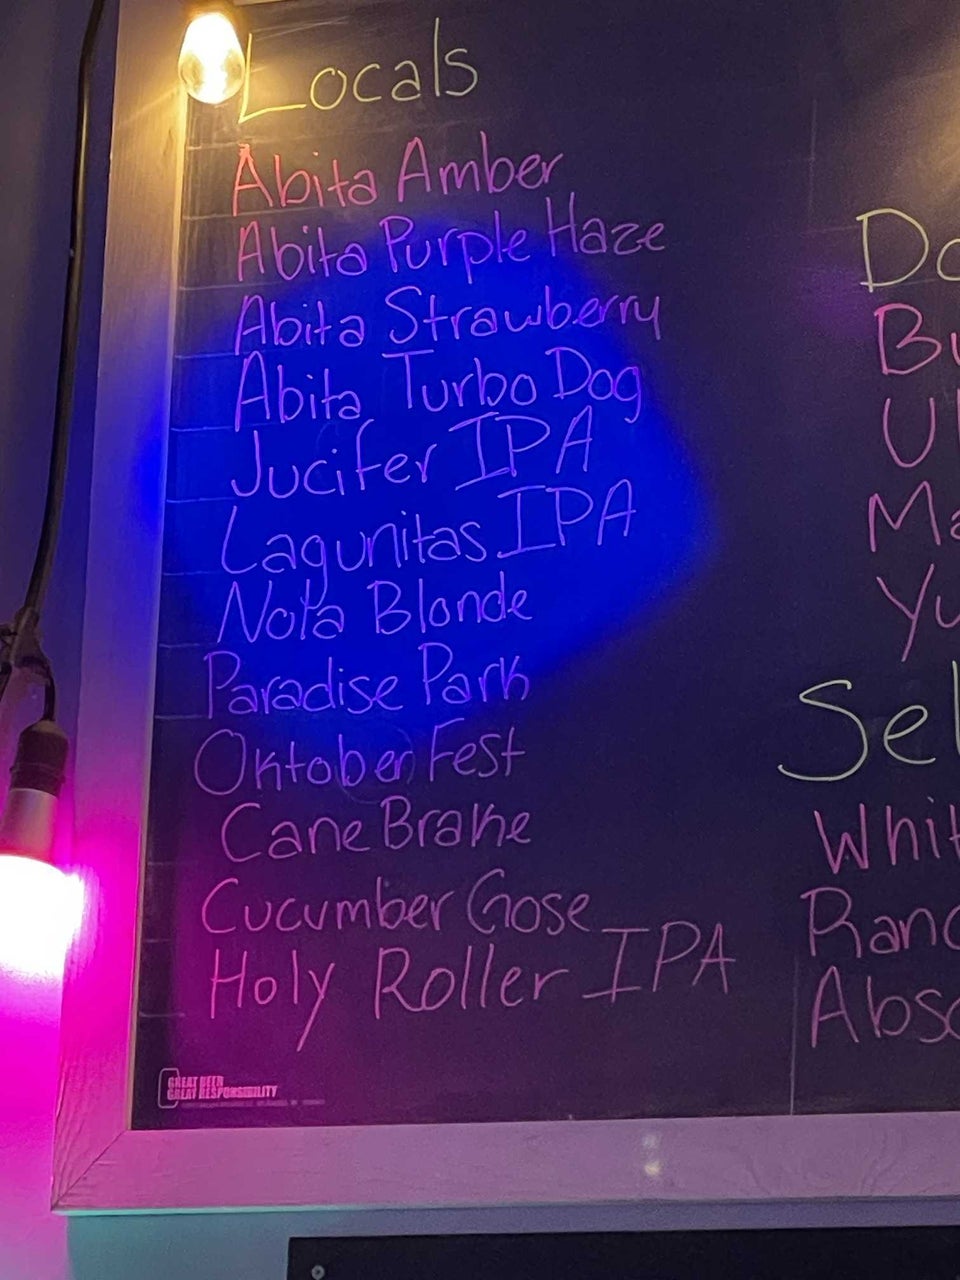 Locals
Abita Amber
Abita Purple Haze
Abita Strawberry
Abita Turbo Dog
Jucifer IPA
Lagunitas IPA
Nola Blonde
Paradise Park
Oktober Fest
Cane Brake
Cucumber Gose
Holy Roller IPA
GREAT BEER
GREAT RESPONSIBILITY
Do
Bu
Ul
Ma
Yu
Sel
Whit
Ranc
Abso